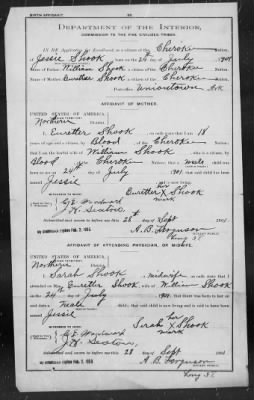 BIRTH AFFIDAVIT
DEPARTMENT OF THE INTERIOR,
COMMISSION TO THE FIVE CIVILIZED TRIBES.
IN RE Application for Enrollment, as a citizen of the Cherokee Nation,
of Jessie Shook born on the 24 day of July 1901
Name of Father: William Shook a citizen of the Cherokee Nation.
Name of Mother: Eviretter Shook a citizen of the Cherokee Nation.
Postoffice Uniontown Ark
AFFIDAVIT OF MOTHER.
UNITED STATES OF AMERICA
Northern District
I, Eviretter Shook on oath state that I am 18
years of age and a citizen by Blood of the Cherokee
that I am the lawful wife of William Shook who is a citizen, by
Blood of the Cherokee Nation; that a male child was
born to me on 24th day of July 1901 that said child has been
named Jessie and is now living.
her
Eviretter X Shook
mark
G.E. Woodward
J.H. Sexton
Subscribed and sworn to before me this 28th day of Sept 1901
A.B. Ferguson
AFFIDAVIT OF ATTENDING PHYSICIAN, OR MIDWIFE.
UNITED STATES OF AMERICA
Northern District
I, Sarah Shook a midwife on oath state that I
attended on Eviretter Shook wife of William Shook
on the 24 day of July 1901; that there was born to her on
said date a male child; that said child is now living and is said to have been
named Jessie
her
Sarah X Shook
mark
G.E. Woodward
J.H. Sexton
Subscribed and sworn to before me this 28 day of Sept 1901
A.B. Ferguson